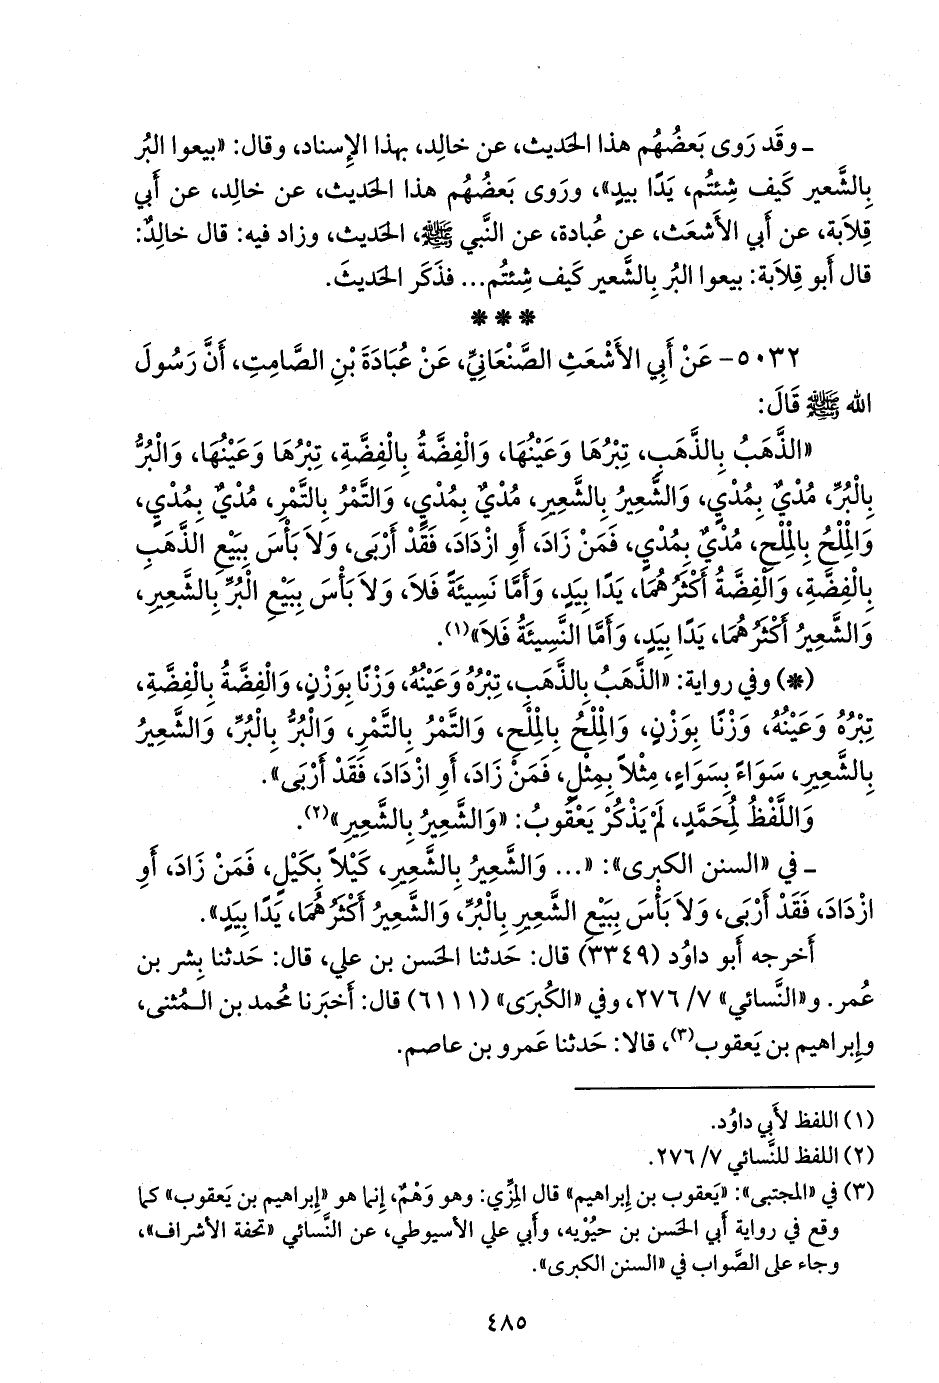 ـ وقَد رَوى بَعضُهُم هذا الحَديث، عن خالِد، بهذا الإِسناد، وقال: «بيعوا البُر
بِالشَّعير كَيف شِئتُم، يَدًا بيدٍ»، ورَوى بَعضُهُم هذا الحَديث، عن خالِد، عن أَبي
قِلاَبة، عن أَبي الأَشعَث، عن عُبادة، عن النَّبي ﷺ، الحَديث، وزاد فيه: قال خالِدٌ:
قال أَبو قِلاَبة: بيعوا البُر بِالشَّعير كَيف شِئتُم... فذَكَر الحَديثَ.
***
٥٠٣٢- عَنْ أَبِي الأَشْعَثِ الصَّنْعَانِيِّ، عَنْ عُبَادَةَ بْنِ الصَّامِتِ، أَنَّ رَسُولَ
الله ﷺ قَالَ:
«الذَّهَبُ بِالذَّهَبِ، تِبْرُهَا وَعَيْنُهَا، وَالْفِضَّةُ بِالْفِضَّةِ، تِبْرُهَا وَعَيْنُهَا، وَالْبُرُّ
بِالْبُرِّ، مُدْيٌ بِمُدْيٍ، وَالشَّعِيرُ بِالشَّعِيرِ، مُدْيٌ بِمُدْيٍ، وَالتَّمْرُ بِالتَّمْرِ، مُدْيٌ بِمُدْيٍ،
وَالْمِلْحُ بِالْمِلْحِ، مُدْيٌ بِمُدْيٍ، فَمَنْ زَادَ، أَوِ ازْدَادَ، فَقَدْ أَرْبَى، وَلاَ بَأْسَ بِبَيْعِ الذَّهَبِ
بِالْفِضَّةِ، وَالْفِضَّةُ أَكْثَرُهُمَا، يَدًا بِيَدٍ، وَأَمَّا نَسِيئَةً فَلاَ، وَلاَ بَأْسَ بِبَيْعِ الْبُرِّ بِالشَّعِيرِ،
وَالشَّعِيرُ أَكْثَرُهُمَا، يَدًا بِيَدٍ، وَأَمَّا النَّسِيئَةُ فَلاَ»(١).
(*) وفي رواية: «الذَّهَبُ بِالذَّهَبِ، تِبْرُهُ وَعَيْنُهُ، وَزْنًا بِوَزْنٍ، وَالْفِضَّةُ بِالْفِضَّةِ،
تِبْرُهُ وَعَيْنُهُ، وَزْنًا بِوَزْنٍ، وَالْمِلْحُ بِالْمِلْحِ، وَالتَّمْرُ بِالتَّمْرِ، وَالْبُرُّ بِالْبُرِّ، وَالشَّعِيرُ
بِالشَّعِيرِ، سَوَاءً بِسَوَاءٍ، مِثْلاً بِمِثْلٍ، فَمَنْ زَادَ، أَوِ ازْدَادَ، فَقَدْ أَرْبَى».
وَاللَّفْظُ لِمُحَمَّدٍ، لَمْ يَذْكُرْ يَعْقُوبُ: «وَالشَّعِيرُ بِالشَّعِيرِ»(٢).
ـ في «السنن الكبرى»: «... وَالشَّعِيرُ بِالشَّعِيرِ، كَيْلاً بِكَيْلٍ، فَمَنْ زَادَ، أَوِ
ازْدَادَ، فَقَدْ أَرْبَى، وَلاَ بَأْسَ بِبَيْعِ الشَّعِيرِ بِالْبُرِّ، وَالشَّعِيرُ أَكْثَرُهُمَا، يَدًا بِيَدٍ».
أَخرجه أَبو داوُد (٣٣٤٩) قال: حَدثنا الحَسن بن علي، قال: حَدثنا بِشر بن
عُمر. و«النَّسائي» ٧/ ٢٧٦، وفي «الكُبرَى» (٦١١١) قال: أَخبَرنا مُحمد بن الـمُثنى،
وإِبراهيم بن يَعقوب(٣)، قالا: حَدثنا عَمرو بن عاصم.
(١) اللفظ لأَبي داوُد.
(٢) اللفظ للنَّسائي ٧/ ٢٧٦.
(٣) في «المجتبى»: «يَعقوب بن إِبراهيم» قال المِزِّي: وهو وَهْمٌ، إِنما هو «إِبراهيم بن يَعقوب» كما
وقع في رواية أَبي الحَسن بن حيُّويه، وأَبي علي الأسيوطي، عن النَّسائي «تحفة الأشراف»،
وجاء على الصَّواب في «السنن الكبرى».
٤٨٥